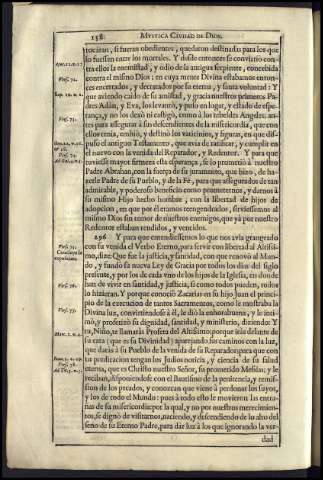 158. MYSTICA CIUDAD DE DIOS.
tocàran, si fueran obedientes, quedaron destinados para los que
lo fuessen entre los mortales. Y desde entonces se convirtio con-
tra ellos la enemistad, y odio de la antigua serpiente, concebida
contra el mismo Dios: en cuya mente Divina estabamos enton-
ces encerrados, y decretados por su eterna, y santa voluntad: Y
que aviendo caido de su amistad, y gracia nuestros primeros Pa-
dres Adàn, y Eva, los levantò, y puso en lugar, y estado de espe-
rança, y no los dexò ni castigò, como à los rebeldes Angeles: an-
tes para assegurar à sus descendientes de la misericordia, que con
ellos tenia, embiò, y destinò los vaticinios, y figuras, en que dis-
puso el antiguo Testamento, que avia de ratificar, y cumplir en
el nuevo con la venida del Reparador, y Redentor. Y para que
tuviesse mayor firmeza esta esperança, se lo prometiò à nuestro
Padre Abrahan, con la fuerça de su juramento, que hizo, de ha-
zerle Padre de su Pueblo, y de la Fè, para que assegurados de tan
admirable, y poderoso beneficio como prometernos, y darnos à
su mismo Hijo hecho hombre; con la libertad de hijos de
adopcion, en que por el eramos reengendrados, sirviessemos al
mismo Dios sin temor de nuestros enemigos, que yà por nuestro
Redentor estaban rendidos, y vencidos.
296 Y para que entendiessemos lo que nos avia grangeado
con su venida el Verbo Eterno, para servir con libertad al Altissi-
mo, dize: Que fue la justicia, y santidad, con que renovò al Mun-
do, y fundò su nueva Ley de Gracia por todos los dias del siglo
presente, y por los de cada vno de los hijos de la Iglesia, en donde
han de vivir en santidad, y justicia, si como todos pueden, todos
lo hizieran. Y porque conociò Zacarias en su hijo Juan el princi-
pio de la execucion de tantos Sacramentos, como le mostraba la
Divina luz, convirtiendose à èl, le diò la enhorabuena, y le inti-
mò, y profetizò su dignidad, santidad, y ministerio, diziendo: Y
tu, Niño, te llamaràs Profeta del Altissimo; porque iràs delante de
su cara (que es su Divinidad) aparejando sus caminos con la luz,
que daràs à su Pueblo de la venida de su Reparador; para que con
tu predicacion tengan los Judios noticia, y ciencia de su salud
eterna, que es Christo nuestro Señor, su prometido Messias; y le
reciban, disponiendose con el Bautismo de la penitencia, y remis-
sion de los pecados, y conozcan que viene à perdonar los suyos,
y los de todo el Mundo: pues à todo esto le movieron las entra-
ñas de su misericordia; por la qual, y no por nuestros merecimien-
tos, se dignò de visitarnos, naciendo, y descendiendo de lo alto del
seno de su Eterno Padre, para dar luz à los que ignorando la ver-
dad